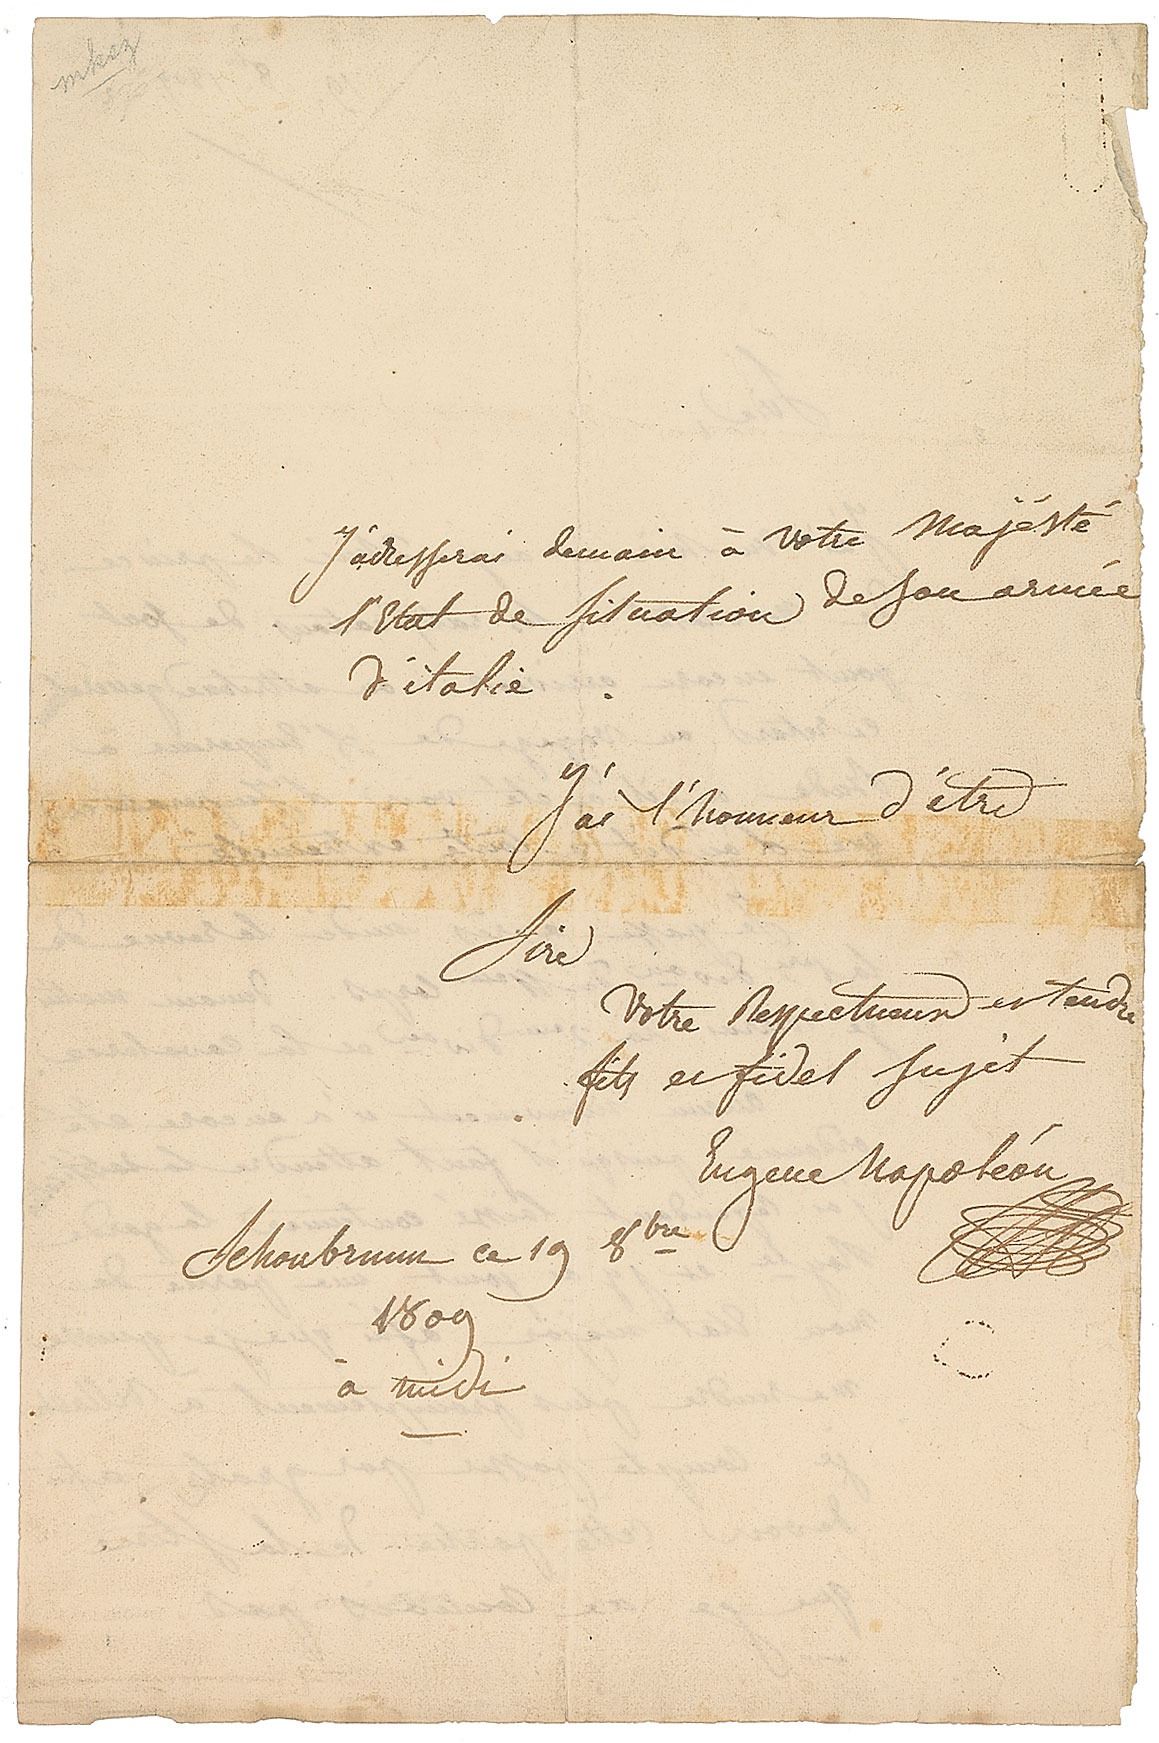 J'adresserai demain à votre Majésté
l'Etat de situation de son armée
d'italie.
J'ai l'honneur d'être
Sire
Votre Respectueux et tendre
fils et fidel sujèt
Eugene Napoléon
Schonbrunn ce 19 8bre
1809
à midi